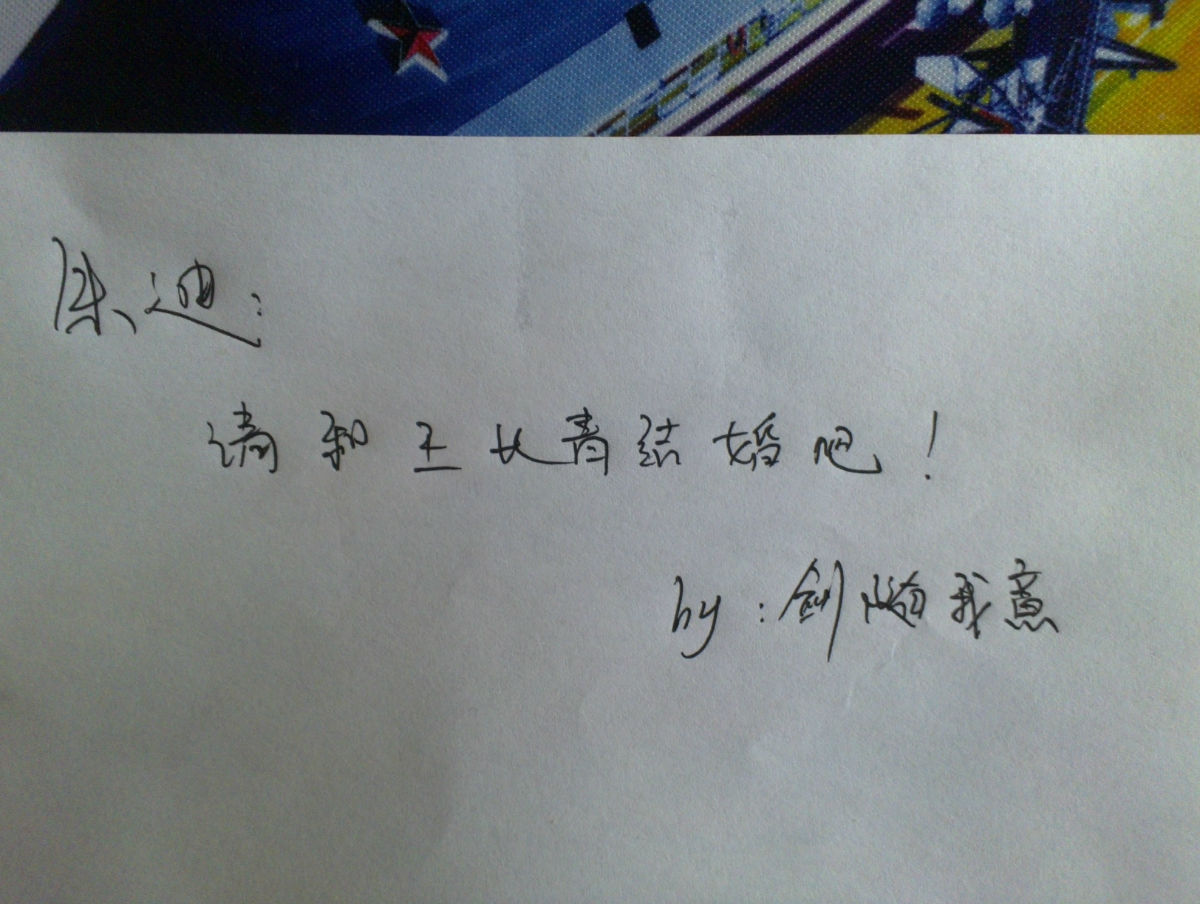 朱迪:
请和王长青结婚吧!
by:剑随我意